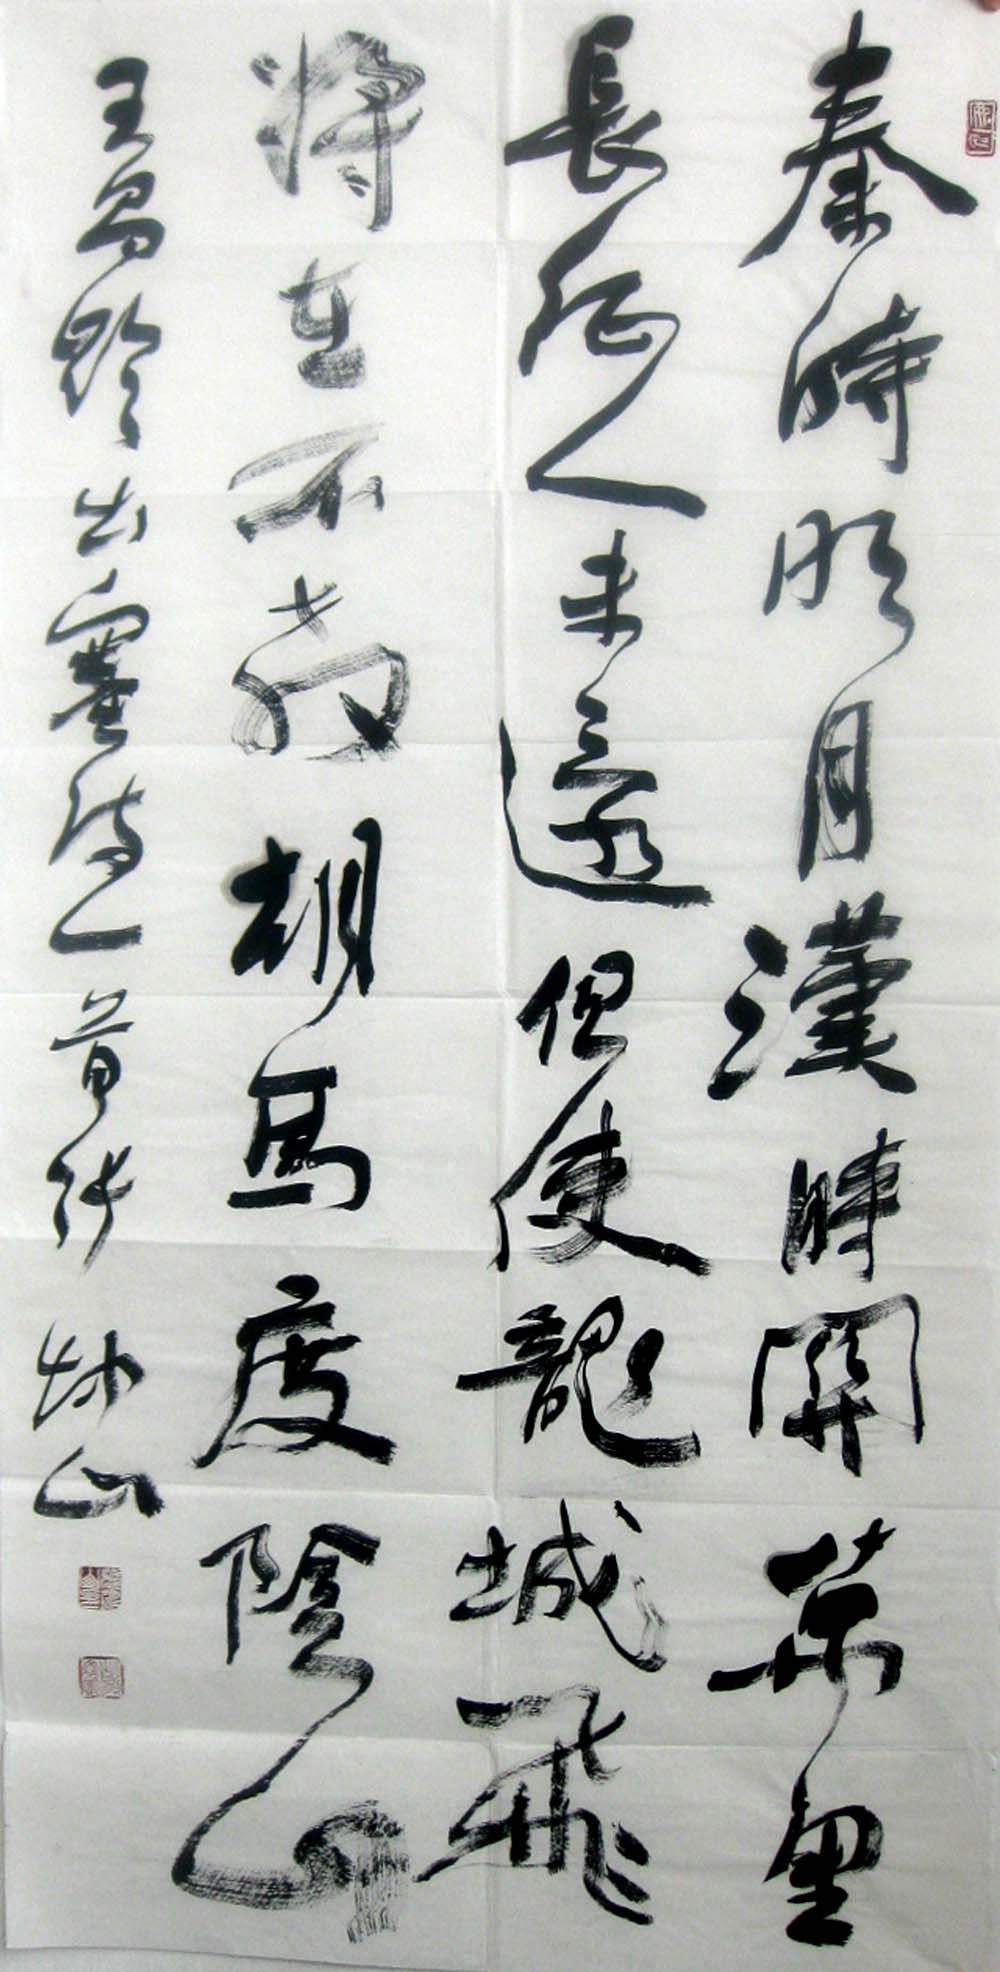 秦時明月漢時関萬里
長征人未還但使龍城飛
将在不教胡馬度陰山
王昌齡出塞詩一首張坤山